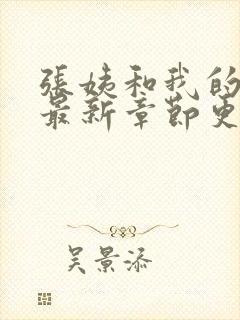 張姨和我的
最新章節更
吴景添